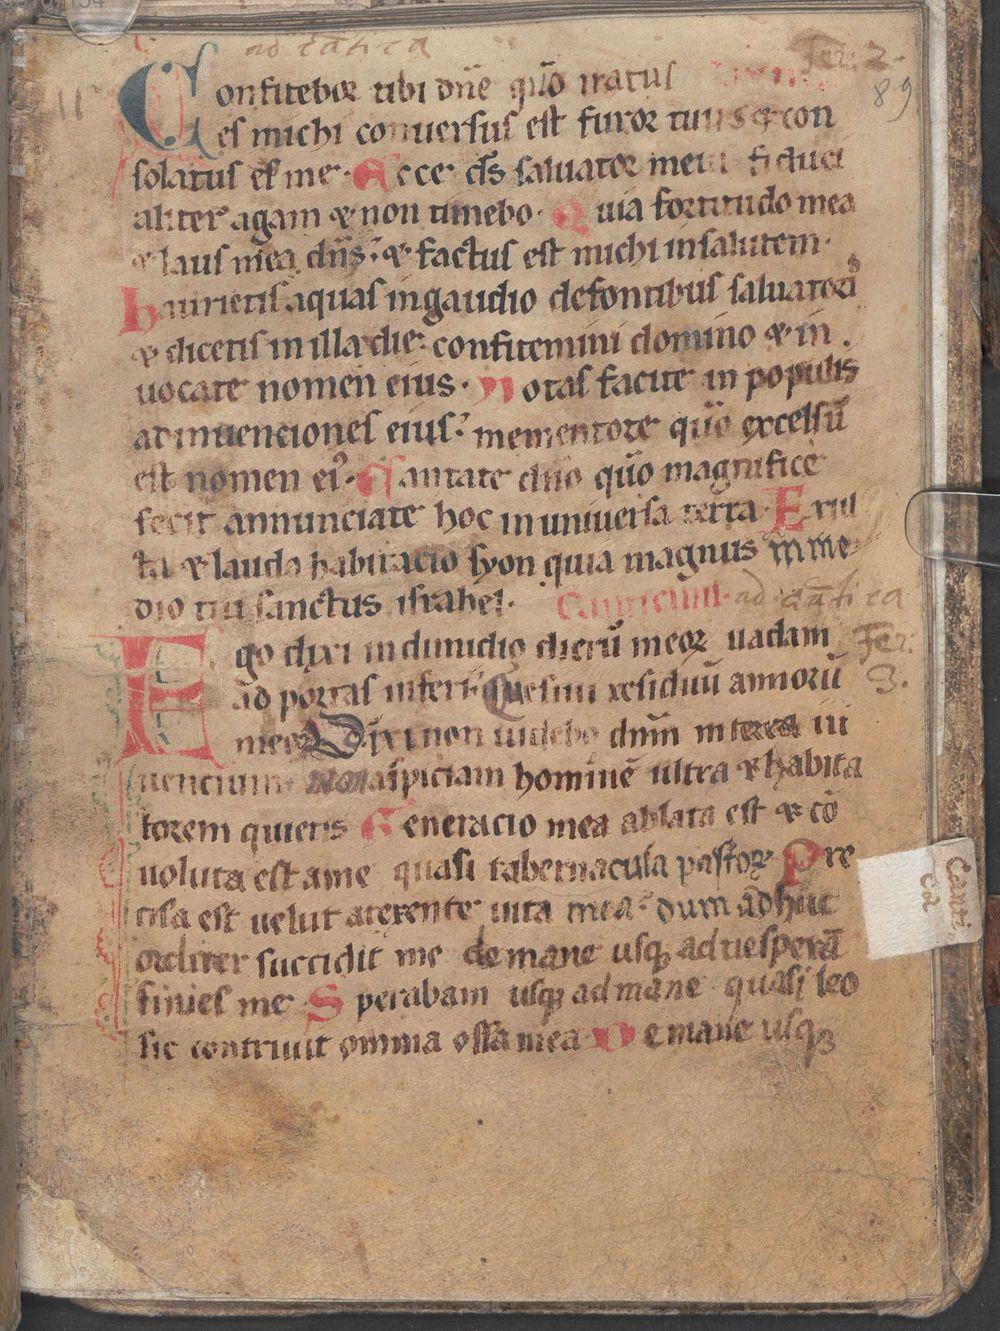 ad cantica Fer. 2.
89
11
Confitebor tibi dñe qm̄ iratus
es michi conuersus est furor tuus & con
solatus es me. Ecce ds̄ saluator meus fiduci
aliter agam & non timebo. Quia fortitudo mea
& laus mea dñs. & factus est michi in salutem.
haurietis aquas in gaudio de fontibus saluatoris
& dicetis in illa die. confitemini domino & in
uocate nomen eius. Notas facite in populis
adinuenciones eius. mementote qm̄ excelsū
est nomen ei9. Cantate dño qm̄ magnifice
fecit annunciate hoc in uniuersa terra. Exul
ta & lauda habitacio syon quia magnus in me
dio tui sanctus israhel. Canticum. ad cantica
Ego dixi in dimidio dierū meoꝝ uadam Fer.
ad portas inferi. Quesiui residuū annorū 3.
meoꝝ Dixi non uidebo dnm̄ in terra ui
uencium. Non aspiciam hominē ultra & habita
torem quietis Generacio mea ablata est & cō
uoluta est a me quasi tabernacula pastoꝝ Pre
cisa est uelut a texente uita mea. dum adhuc
ordirer succidit me de mane usqꝫ ad uesperā
finies me Sperabam usqꝫ ad mane quasi leo
sic contriuit omnia ossa mea De mane usqꝫ
Canti
ca